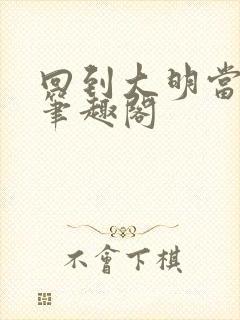 回到大明當
筆趣閣
不會下棋